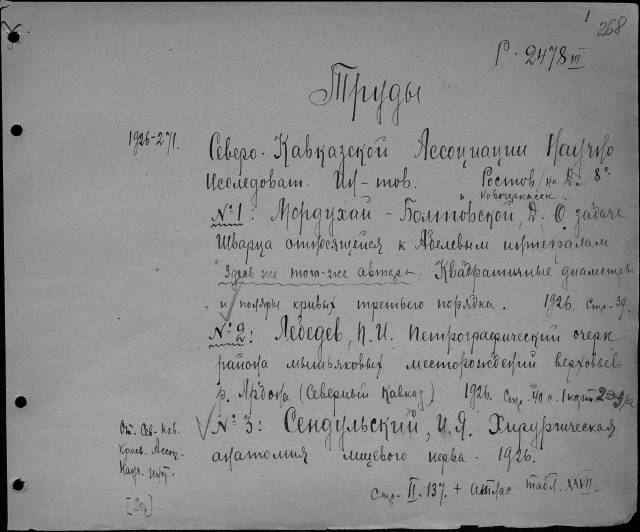 1 268
Р. 2478 III
Труды
1926-271.
Северо-Кавказской Ассоциации Научно
Исследоват. Ин-тов. Ростов/на Д. 8°.
и Новочеркасск
№1: Мордухай-Болтовской, Д. О задаче
Шварца относящейся к Абелевым интегралам
Здесь же того-же автора. Квадратичные диаметры
и поляры кривых третьего порядка. 1926. Стр. 39.
№2: Лебедев, П.И. Петрографический очерк
района мышьяковых месторождений верховьев
р. Ардона (Северный Кавказ) 1926. Стр. 40 с. 1 карт.
№3: Сендульский, И.Я. Хирургическая
анатомия лицевого нерва. 1926.
Стр. II. 137. + атлас табл. XXVII.
От. Сев-Кав.
Краев. Ассоц.
Науч. инст.